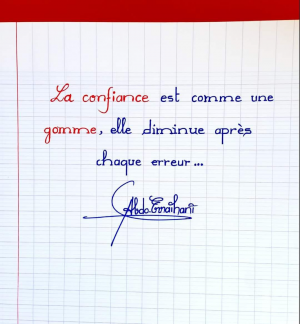 La confiance est comme une
gomme, elle diminue après
chaque erreur...